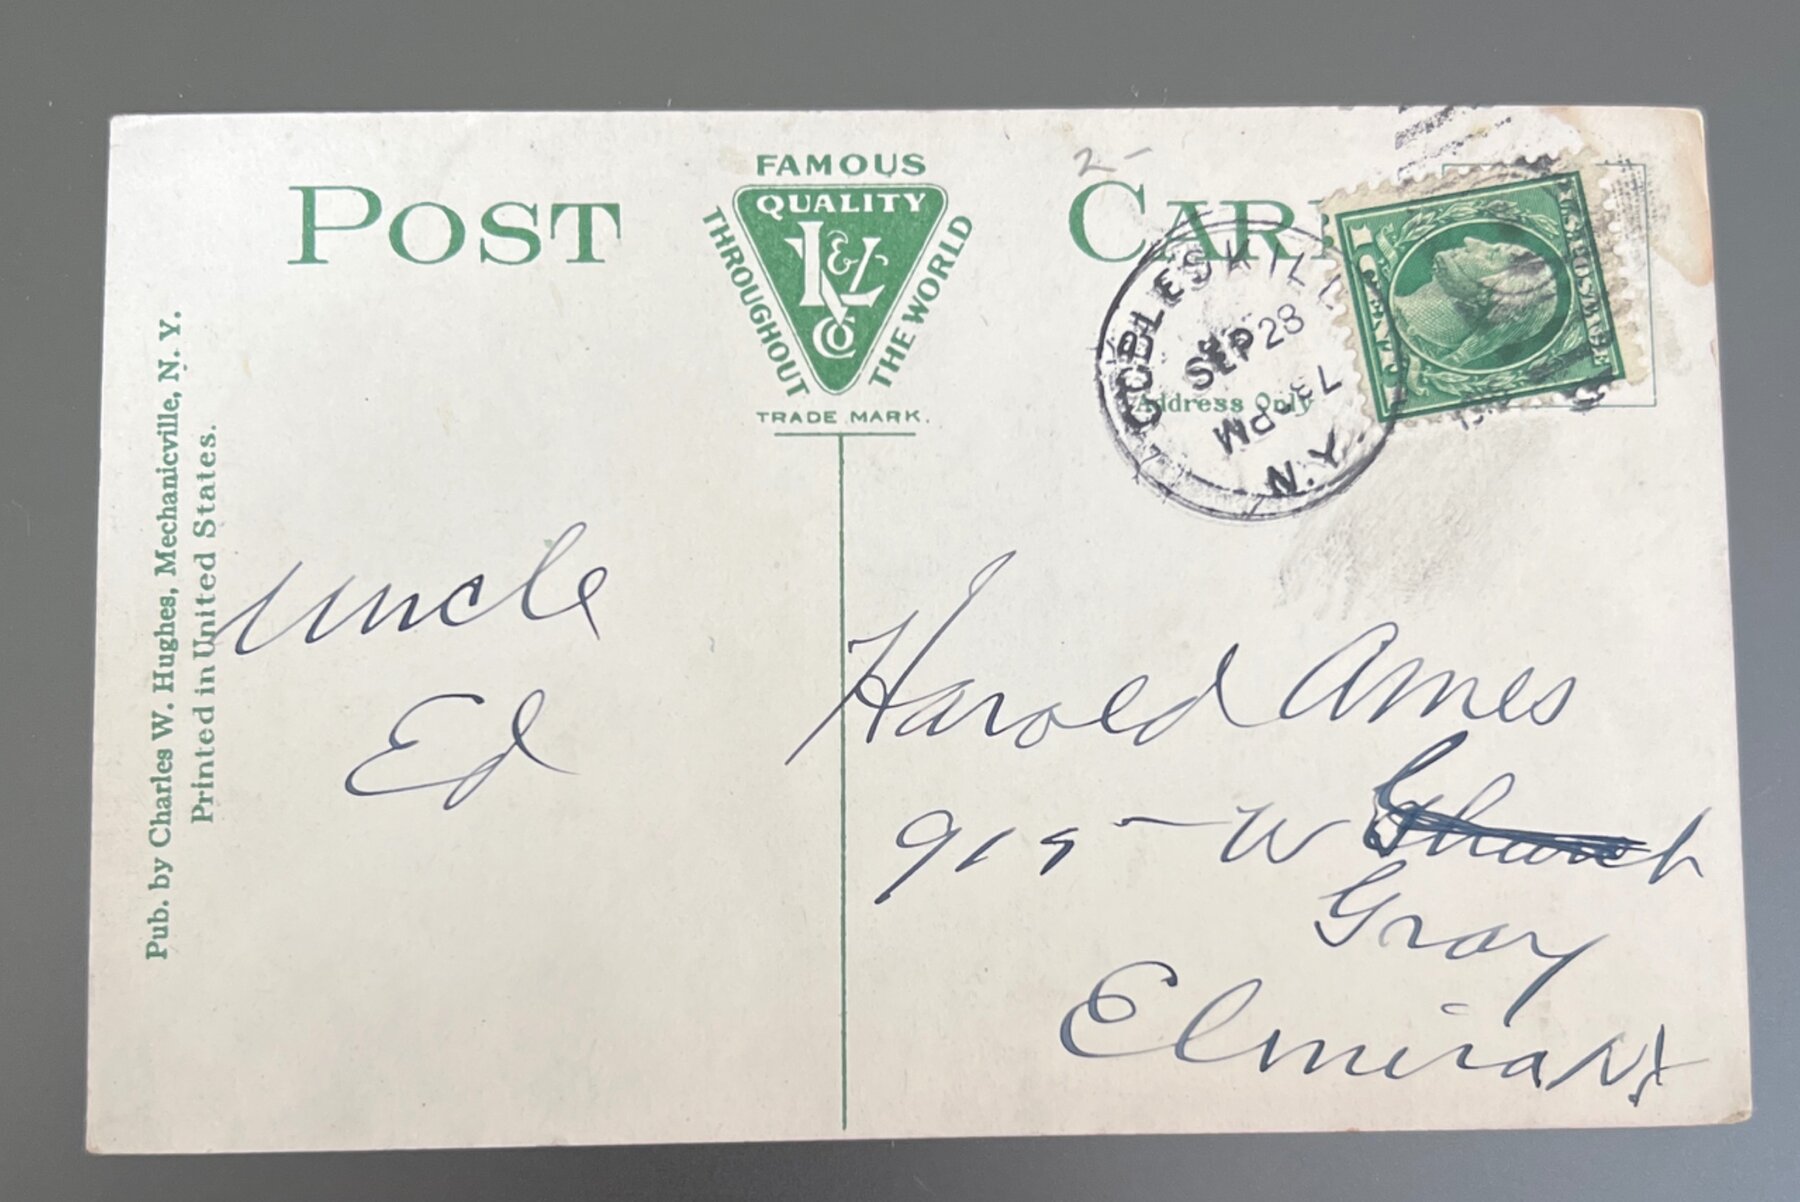 POST
FAMOUS
QUALITY
THROUGHOUT
THE WORLD
K & L
CO
TRADE MARK.
2-
CAR
Address Only
COBLESKILL
SEP 28
PM
N.Y.
U.S. POSTAGE
1 CENT 1
Pub. by Charles W. Hughes, Mechanicville, N. Y.
Printed in United States.
Uncle
Ed
Harold Ames
915 - W Church
Gray
Elmira NY